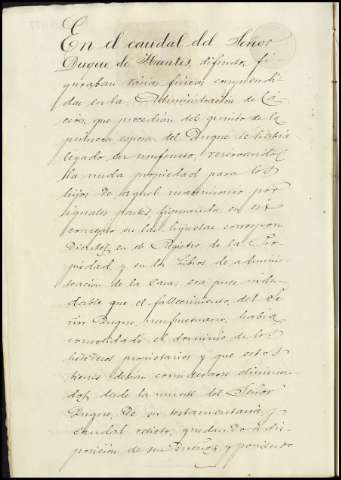 En el caudal del Señor
Duque de Abrantes, difunto, fi-
guraban varias fincas comprendi-
das en la Administración de
que procedian del quinto de la
primera esposa del Duque le habia
legado, en usufructo, reservando
la nuda propiedad para los
hijos de aquel matrimonio por
iguales partes, figurando en este
concepto en las hijuelas correspon
dientes, en el Registro de la Pro-
piedad y en los Libros de adminis-
tracion de la Casa: era pues indu-
dable que el fallecimiento del Se-
ñor Duque, usufructuario, habia
consolidado el dominio de los
herederos propietarios y que estos
bienes debian considerarse
desde la muerte del Señor
Duque, de su testamentaria y
caudal relicto, quedando á dis-
posición de sus Dueños, y poniendo